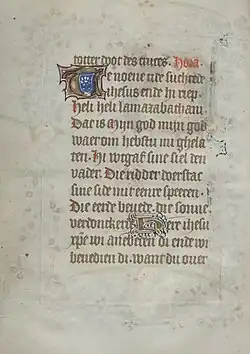 totter doot des cruces. Nona
Te noene tide suchtede
ihesus ende hi riep
heli heli lamazabathani
Dat is mijn god mijn god
waer om hebstu mi ghela
ten. Hi wtgaf sine siel den
vader. Die ridder doerstac
sine side mit enre speeren.
Die eerde beuede. die sonne
verdonckerde Here ihesu
xpe wi anebeden di ende wi
benedien di. want du ouer